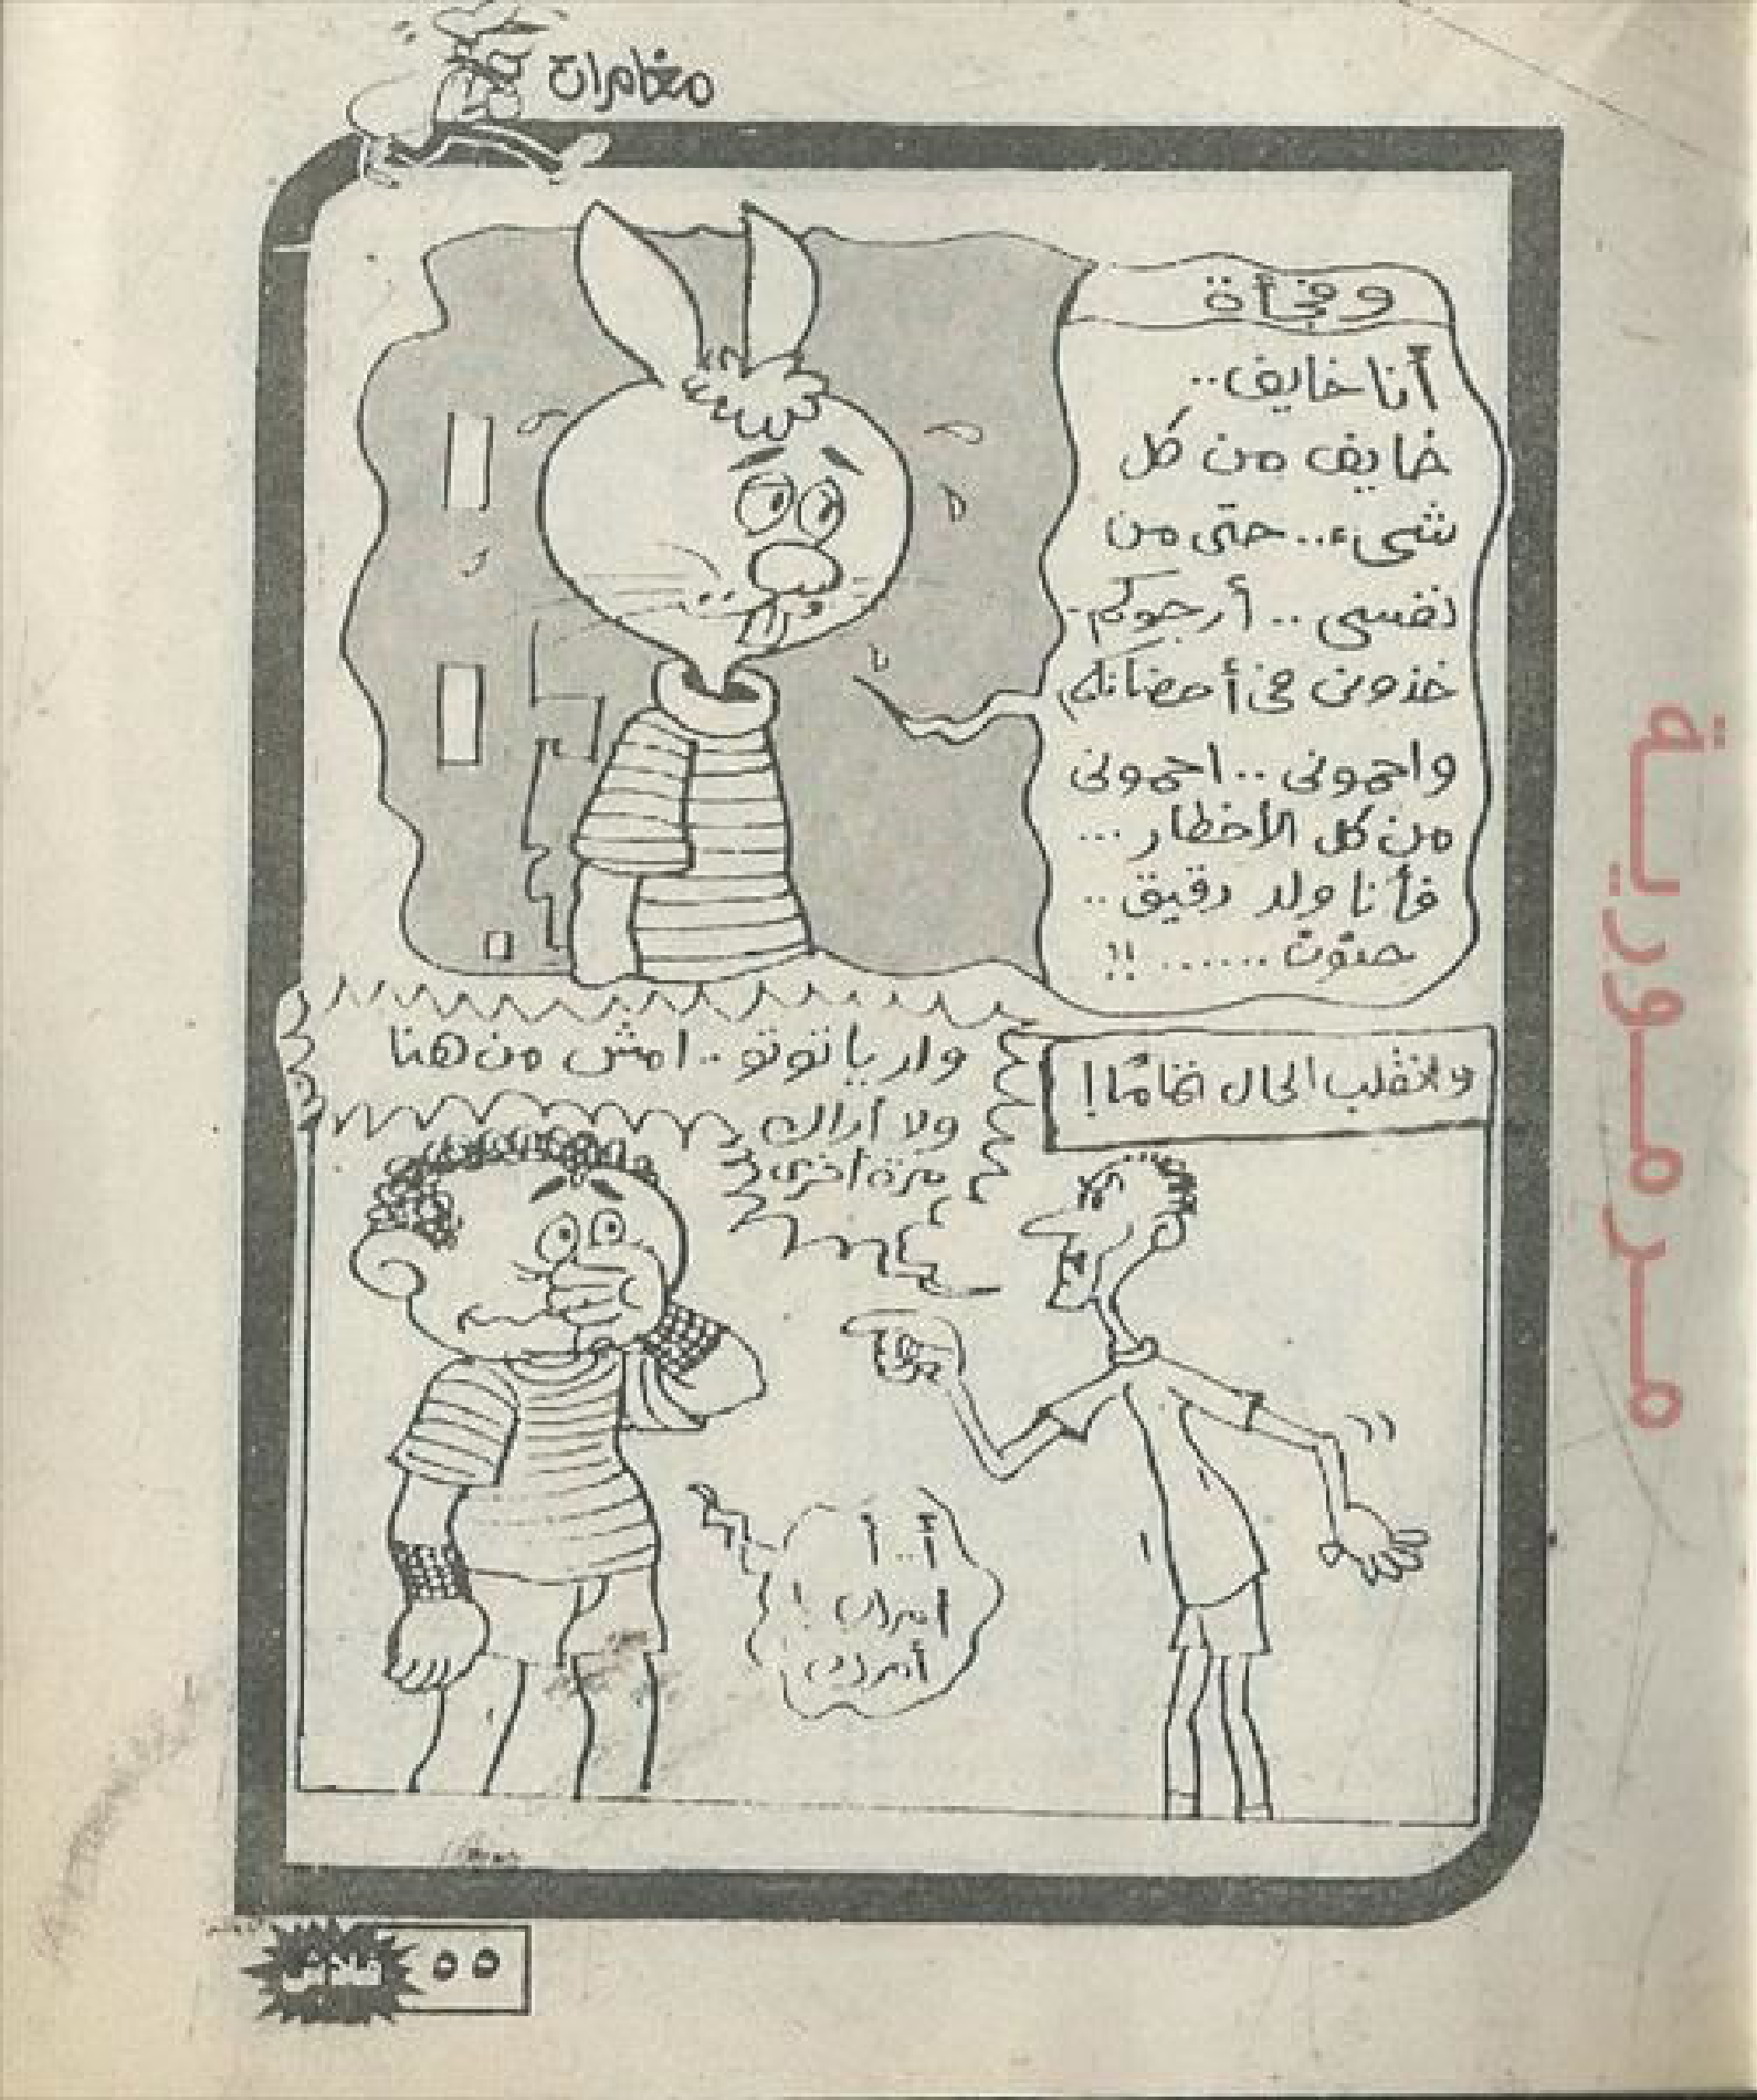 مغامرات
وفجأة
أنا خايف..
خايف من كل
شىء.. حتى من
نفسى.. أرجوكم-
خذونى فى أحضانكم
واحمونى.. احمونى
من كل الأخطار...
فأنا ولد رقيق..
حتوت....... !!
وانقلب الحال تماما!
ولد يا توتو.. امش من هنا
ولا أراك
مرة أخرى
أ..أ
أمرك !
أمرك
٥٥
مرمورية